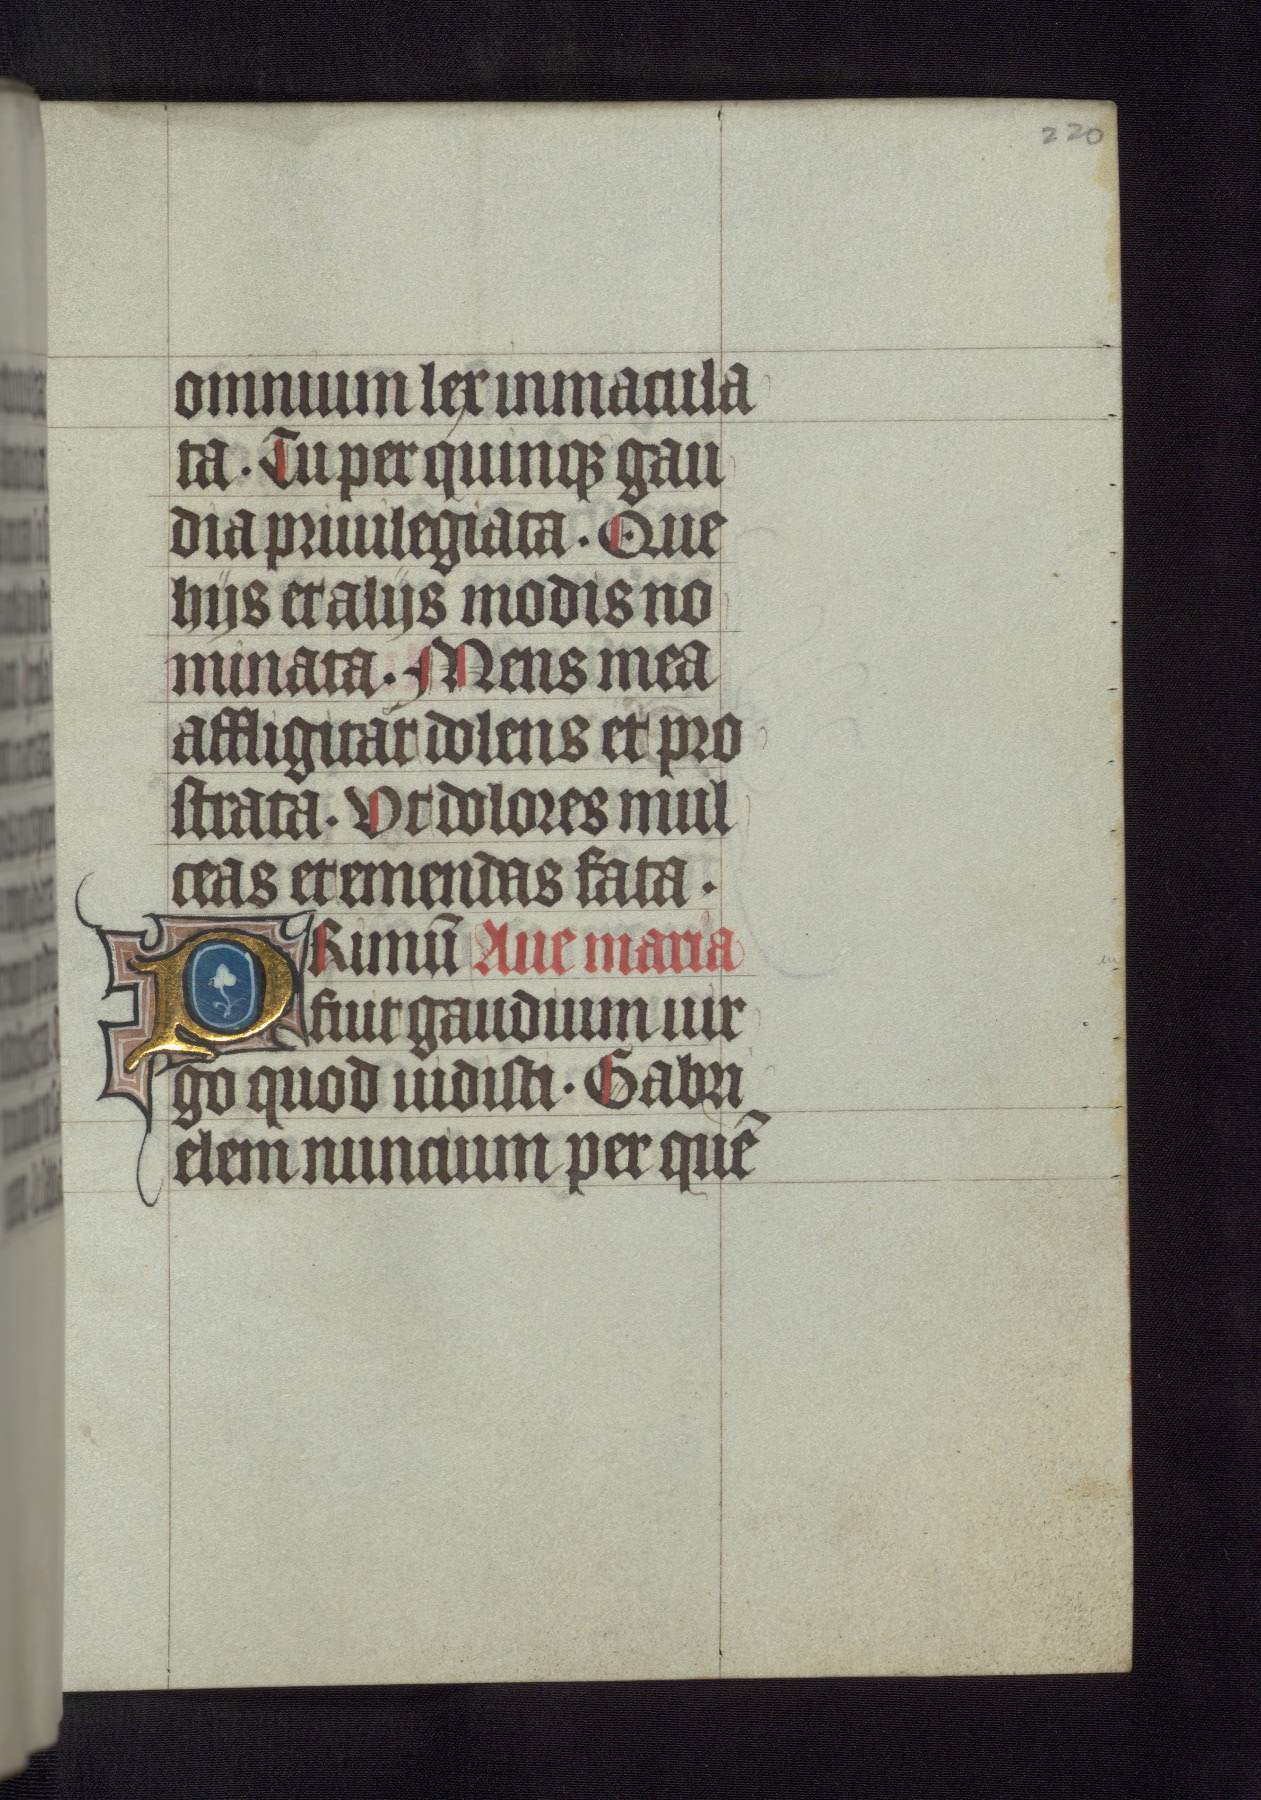 220
omnium lex inmacula
ta. Tu per quinqꝫ gau
dia priuilegiata. Que
hijs et alijs modis no
minata. Mens mea
affligitat dolens et pro
strata. Vt dolores mul
ceas et emendas fata.
PRimū Aue maria
fuit gaudium uir
go quod uidisti. Gabri
elem nuncium per quē